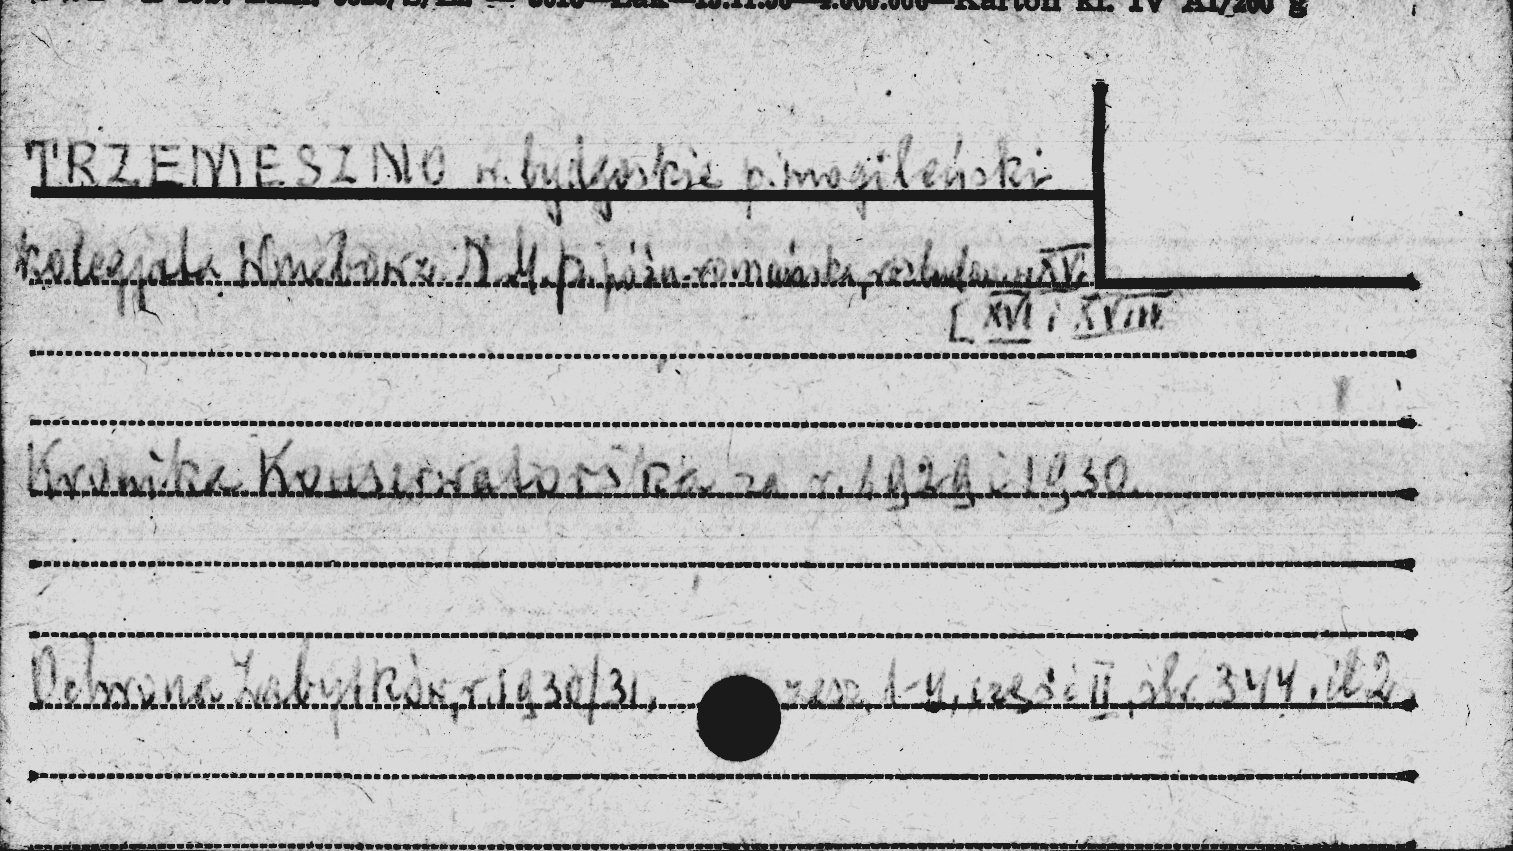 Karton kl. IV A1/200 g
TRZEMESZNO w. bydgoskie p. mogileński
kolegjata Wniebowz. N.M.P. późn. romańska, rozbudow. w XV.
[XVI i XVIII.
Kronika Konserwatorska za r. 1929 i 1930.
Ochrona Zabytków, r. 1930/31, zesz. 1-4, część II, str. 344, il 2.